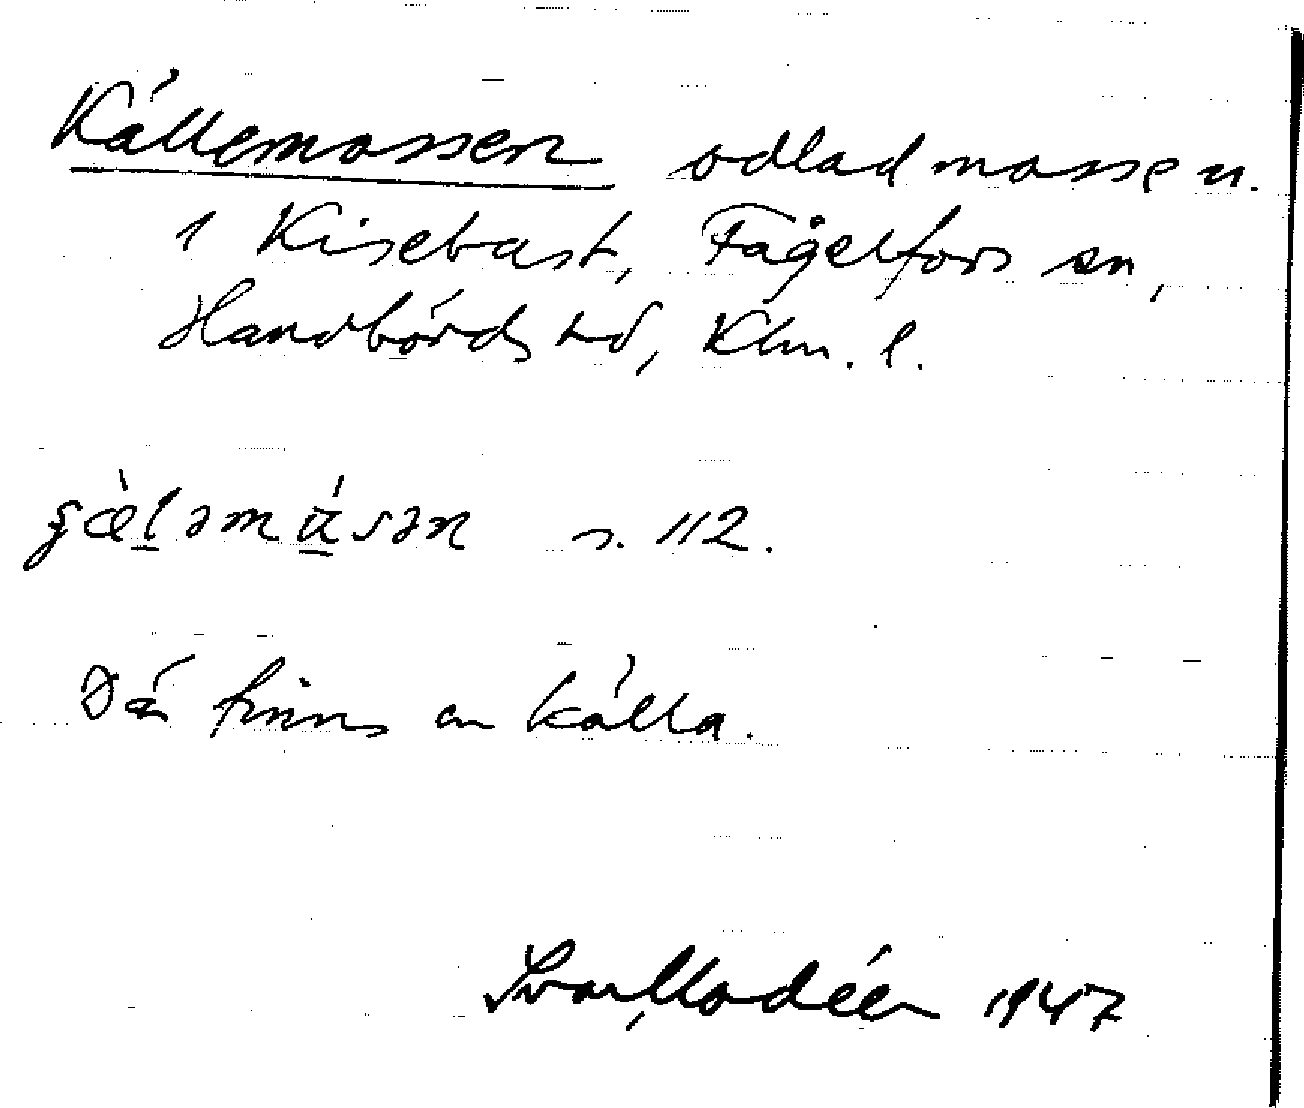 Källemossen odlad mosse u.
1 Kisebast, Fågelfors sn,
Handbörds hd, Klm. l.
s. 112.
Där finns en källa.
Ivar Modéer 1947